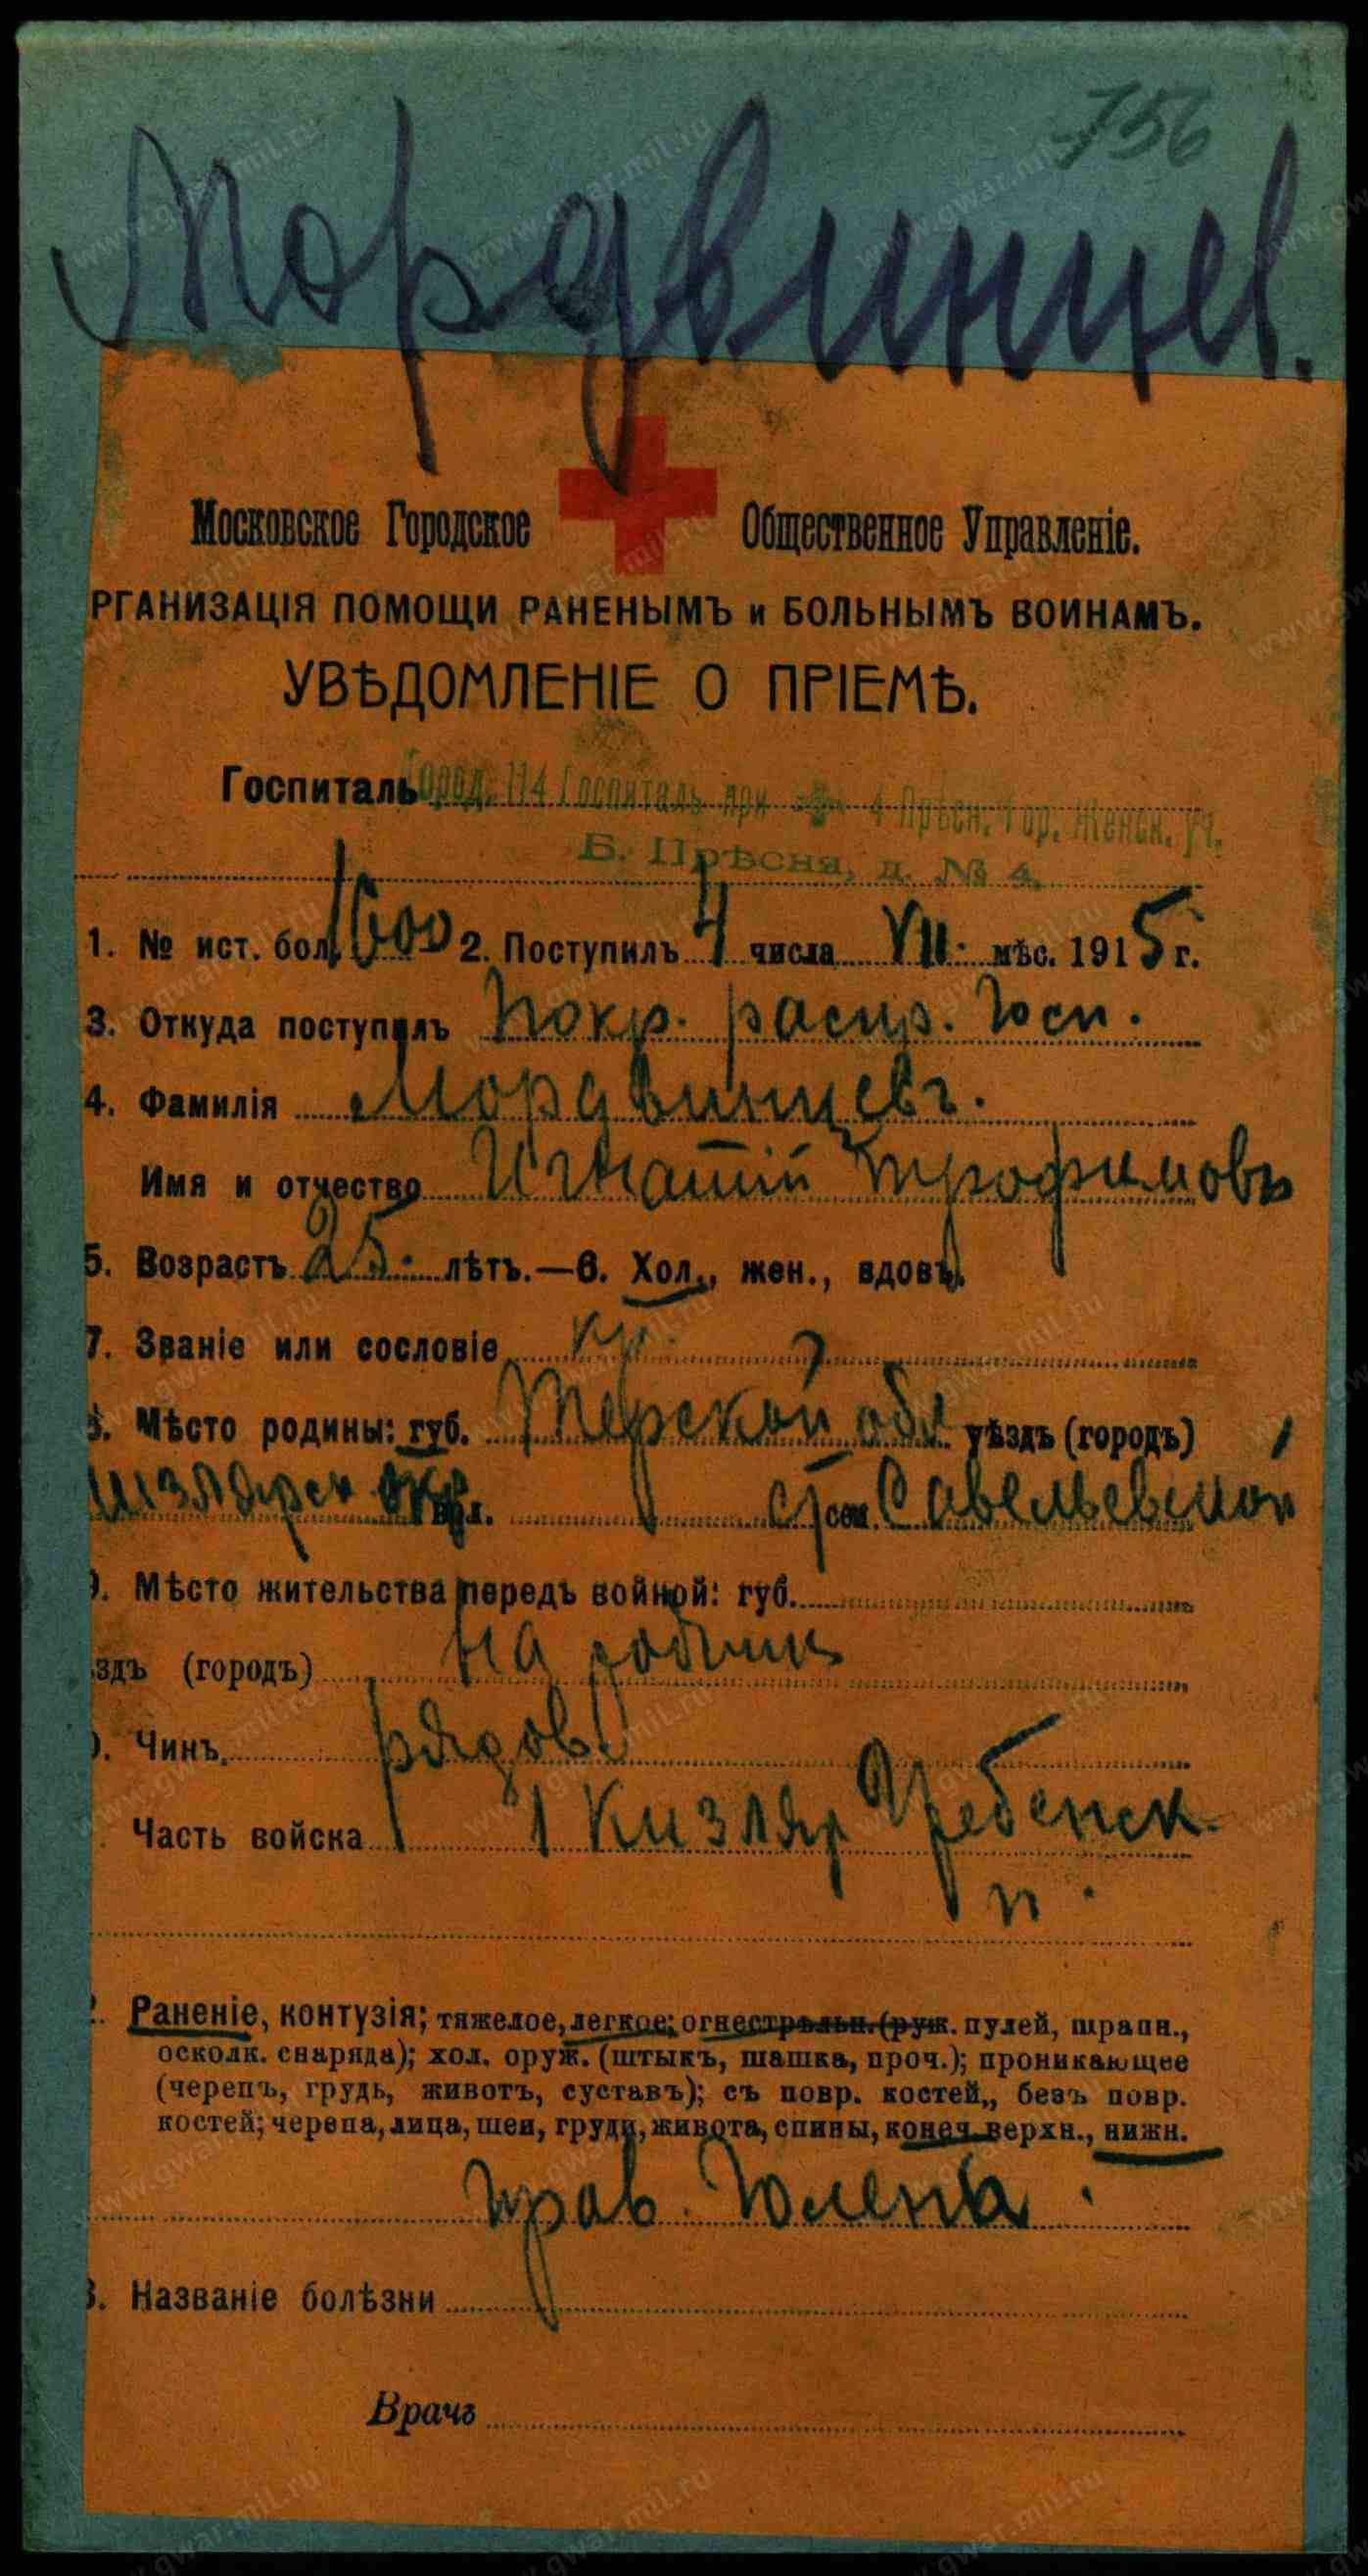 756
Мордвинцев.
Московское Городское Общественное Управленіе.
РГАНИЗАЦІЯ ПОМОЩИ РАНЕНЫМЪ и БОЛЬНЫМЪ ВОИНАМЪ.
УВѢДОМЛЕНІЕ О ПРІЕМѢ.
Госпиталь Город. 114 Госпиталь при 4 Прѣсн. Гор. Женск. Уч.
Б. Прѣсня, д. № 4.
1. № ист. бол. 1600 2. Поступилъ 4 числа VII мѣс. 1915 г.
3. Откуда поступилъ Покр. распр. Госп.
4. Фамилія Мордвинцевъ.
Имя и отчество Игнатій Трофимовъ
5. Возрастъ 25 лѣтъ.—6. Хол., жен., вдовъ.
7. Званіе или сословіе кр.
8. Мѣсто родины: губ. Терской обл уѣздъ (городъ)
излярск окр вол. ст сел. Савельевской
9. Мѣсто жительства передъ войной: губ.
здъ (городъ) на родинѣ
0. Чинъ рядов
Часть войска 1 Кизляр Гребенск.
п.
2. Раненіе, контузія; тяжелое, легкое; огнестрѣльн. (руж. пулей, шрапн.,
осколк. снаряда); хол. оруж. (штыкъ, шашка, проч.); проникающее
(черепъ, грудь, животъ, суставъ); съ повр. костей,, безъ повр.
костей; черепа, лица, шеи, груди, живота, спины, конеч. верхн., нижн.
прав. Голень.
3. Названіе болѣзни
Врачъ